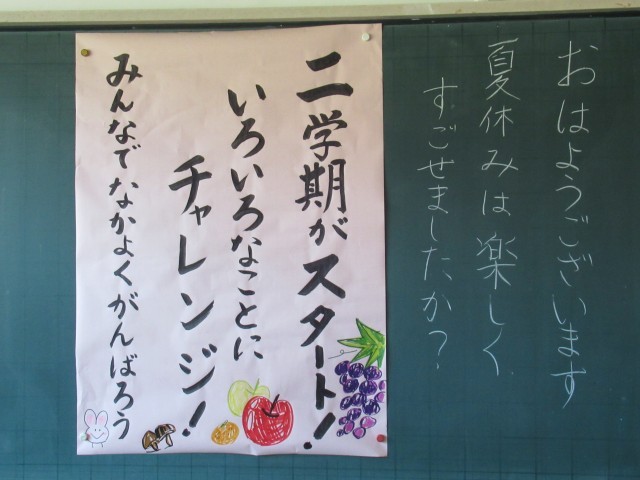 おはようございます
夏休みは楽しく
すごせましたか?
二学期がスタート!
いろいろなことに
チャレンジ!
みんなでなかよくがんばろう